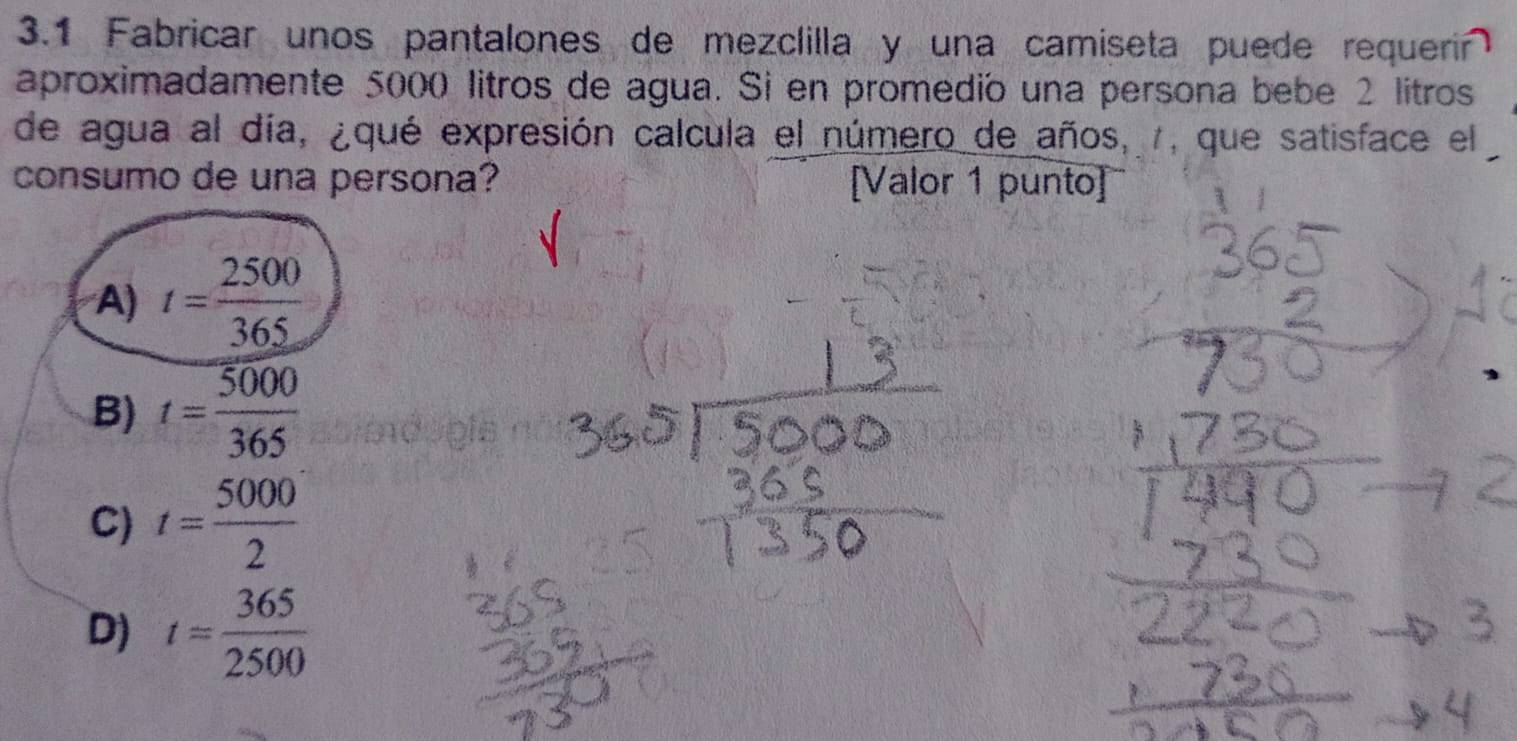 3.1 Fabricar unos pantalones de mezclilla y una camiseta puede requerir
aproximadamente 5000 litros de agua. Si en promedio una persona bebe 2 litros
de agua al día, ¿qué expresión calcula el número de años, t, que satisface el
consumo de una persona? [Valor 1 punto]
A) t = 2500/365
B) t = 5000/365
C) t = 5000/2
D) t = 365/2500
13
365 5000
365
1350
1 1
365
365
730
1 1
365
2
730
730
1490 → 2
730
2220 → 3
730
→ 4